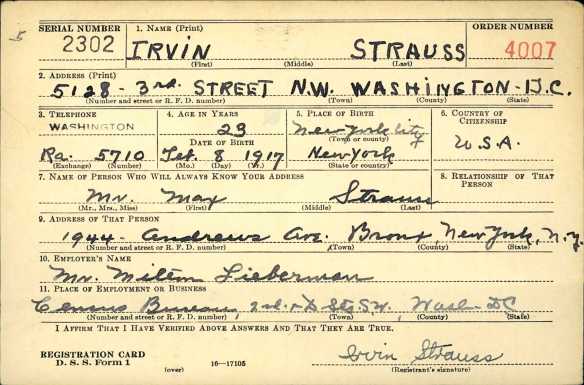 5
SERIAL NUMBER 1. NAME (Print) ORDER NUMBER
2302 IRVIN STRAUSS 4007
(First) (Middle) (Last)
2. ADDRESS (Print)
5128 - 3rd. STREET N.W. WASHINGTON - D.C.
(Number and street or R. F. D. number) (Town) (County) (State)
3. TELEPHONE 4. AGE IN YEARS 5. PLACE OF BIRTH 6. COUNTRY OF CITIZENSHIP
WASHINGTON 23 New York City
DATE OF BIRTH (Town or county)
Ra. 5710 Feb. 8 1917 New York U.S.A.
(Exchange) (Number) (Mo.) (Day) (Yr.) (State or country)
7. NAME OF PERSON WHO WILL ALWAYS KNOW YOUR ADDRESS 8. RELATIONSHIP OF THAT PERSON
Mr. Max Strauss
(Mr., Mrs., Miss) (First) (Middle) (Last)
9. ADDRESS OF THAT PERSON
1944 - Andrews Ave. Bronx, New York, N.Y.
(Number and street or R. F. D. number) (Town) (County) (State)
10. EMPLOYER'S NAME
Mr. Milton Lieberman
11. PLACE OF EMPLOYMENT OR BUSINESS
Census Bureau, 2nd. & D Sts SW, Wash - DC
(Number and street or R. F. D. number) (Town) (County) (State)
I AFFIRM THAT I HAVE VERIFIED ABOVE ANSWERS AND THAT THEY ARE TRUE.
REGISTRATION CARD
D. S. S. Form 1 16-17105 Irvin Strauss
(over) (Registrant's signature)